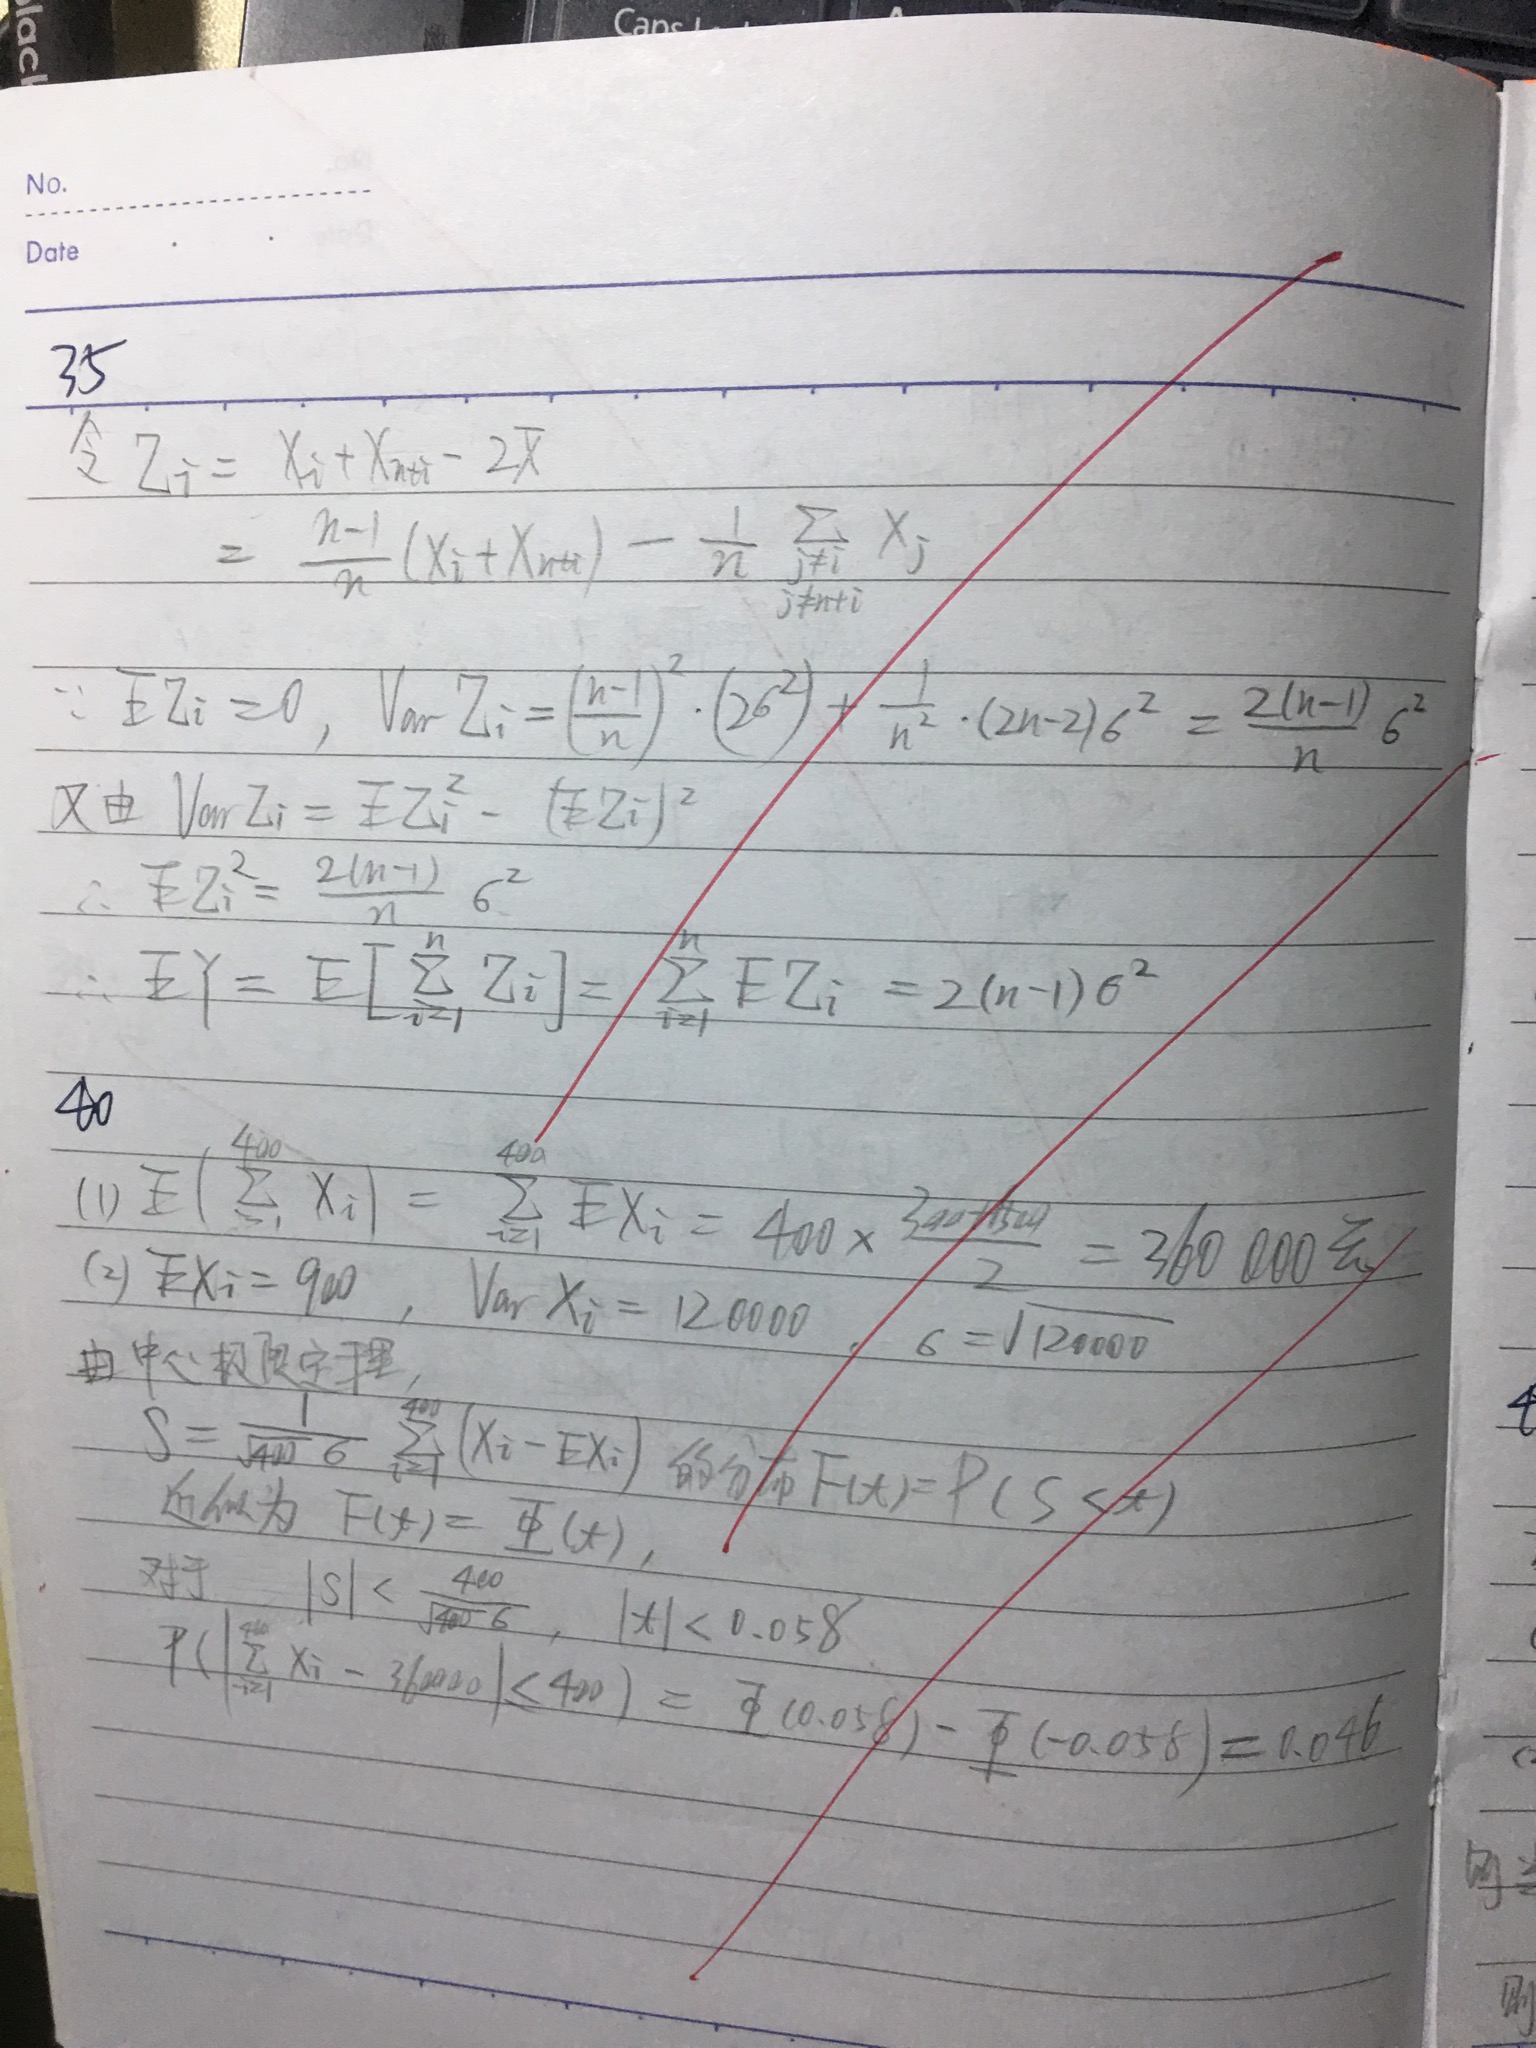 Caps L
black
No.
Date
35
令 Zi = Xi + Xn+i - 2X̄
= n-1/n (Xi + Xn+i) - 1/n Σ j≠i j≠n+i Xj
∵ EZi = 0, Var Zi = (n-1/n)² · (2σ²) + 1/n² · (2n-2)σ² = 2(n-1)/n σ²
又由 Var Zi = EZi² - (EZi)²
∴ EZi² = 2(n-1)/n σ²
∴ EY = E[Σ i=1 n Zi] = Σ i=1 n EZi = 2(n-1)σ²
40
(1) E(Σ i=1 400 Xi) = Σ i=1 400 EXi = 400 × 300+1500/2 = 360 000 元
(2) EXi = 900, Var Xi = 120000, σ = √120000
由中心极限定理,
S = 1/√400 σ Σ i=1 400 (Xi - EXi) 的分布 F(t) = P(S < t)
近似为 F(t) = Φ(t),
对于 |S| < 400/√400 σ, |t| < 0.058
P(|Σ i=1 400 Xi - 360000| ≤ 400) = Φ(0.058) - Φ(-0.058) = 0.046